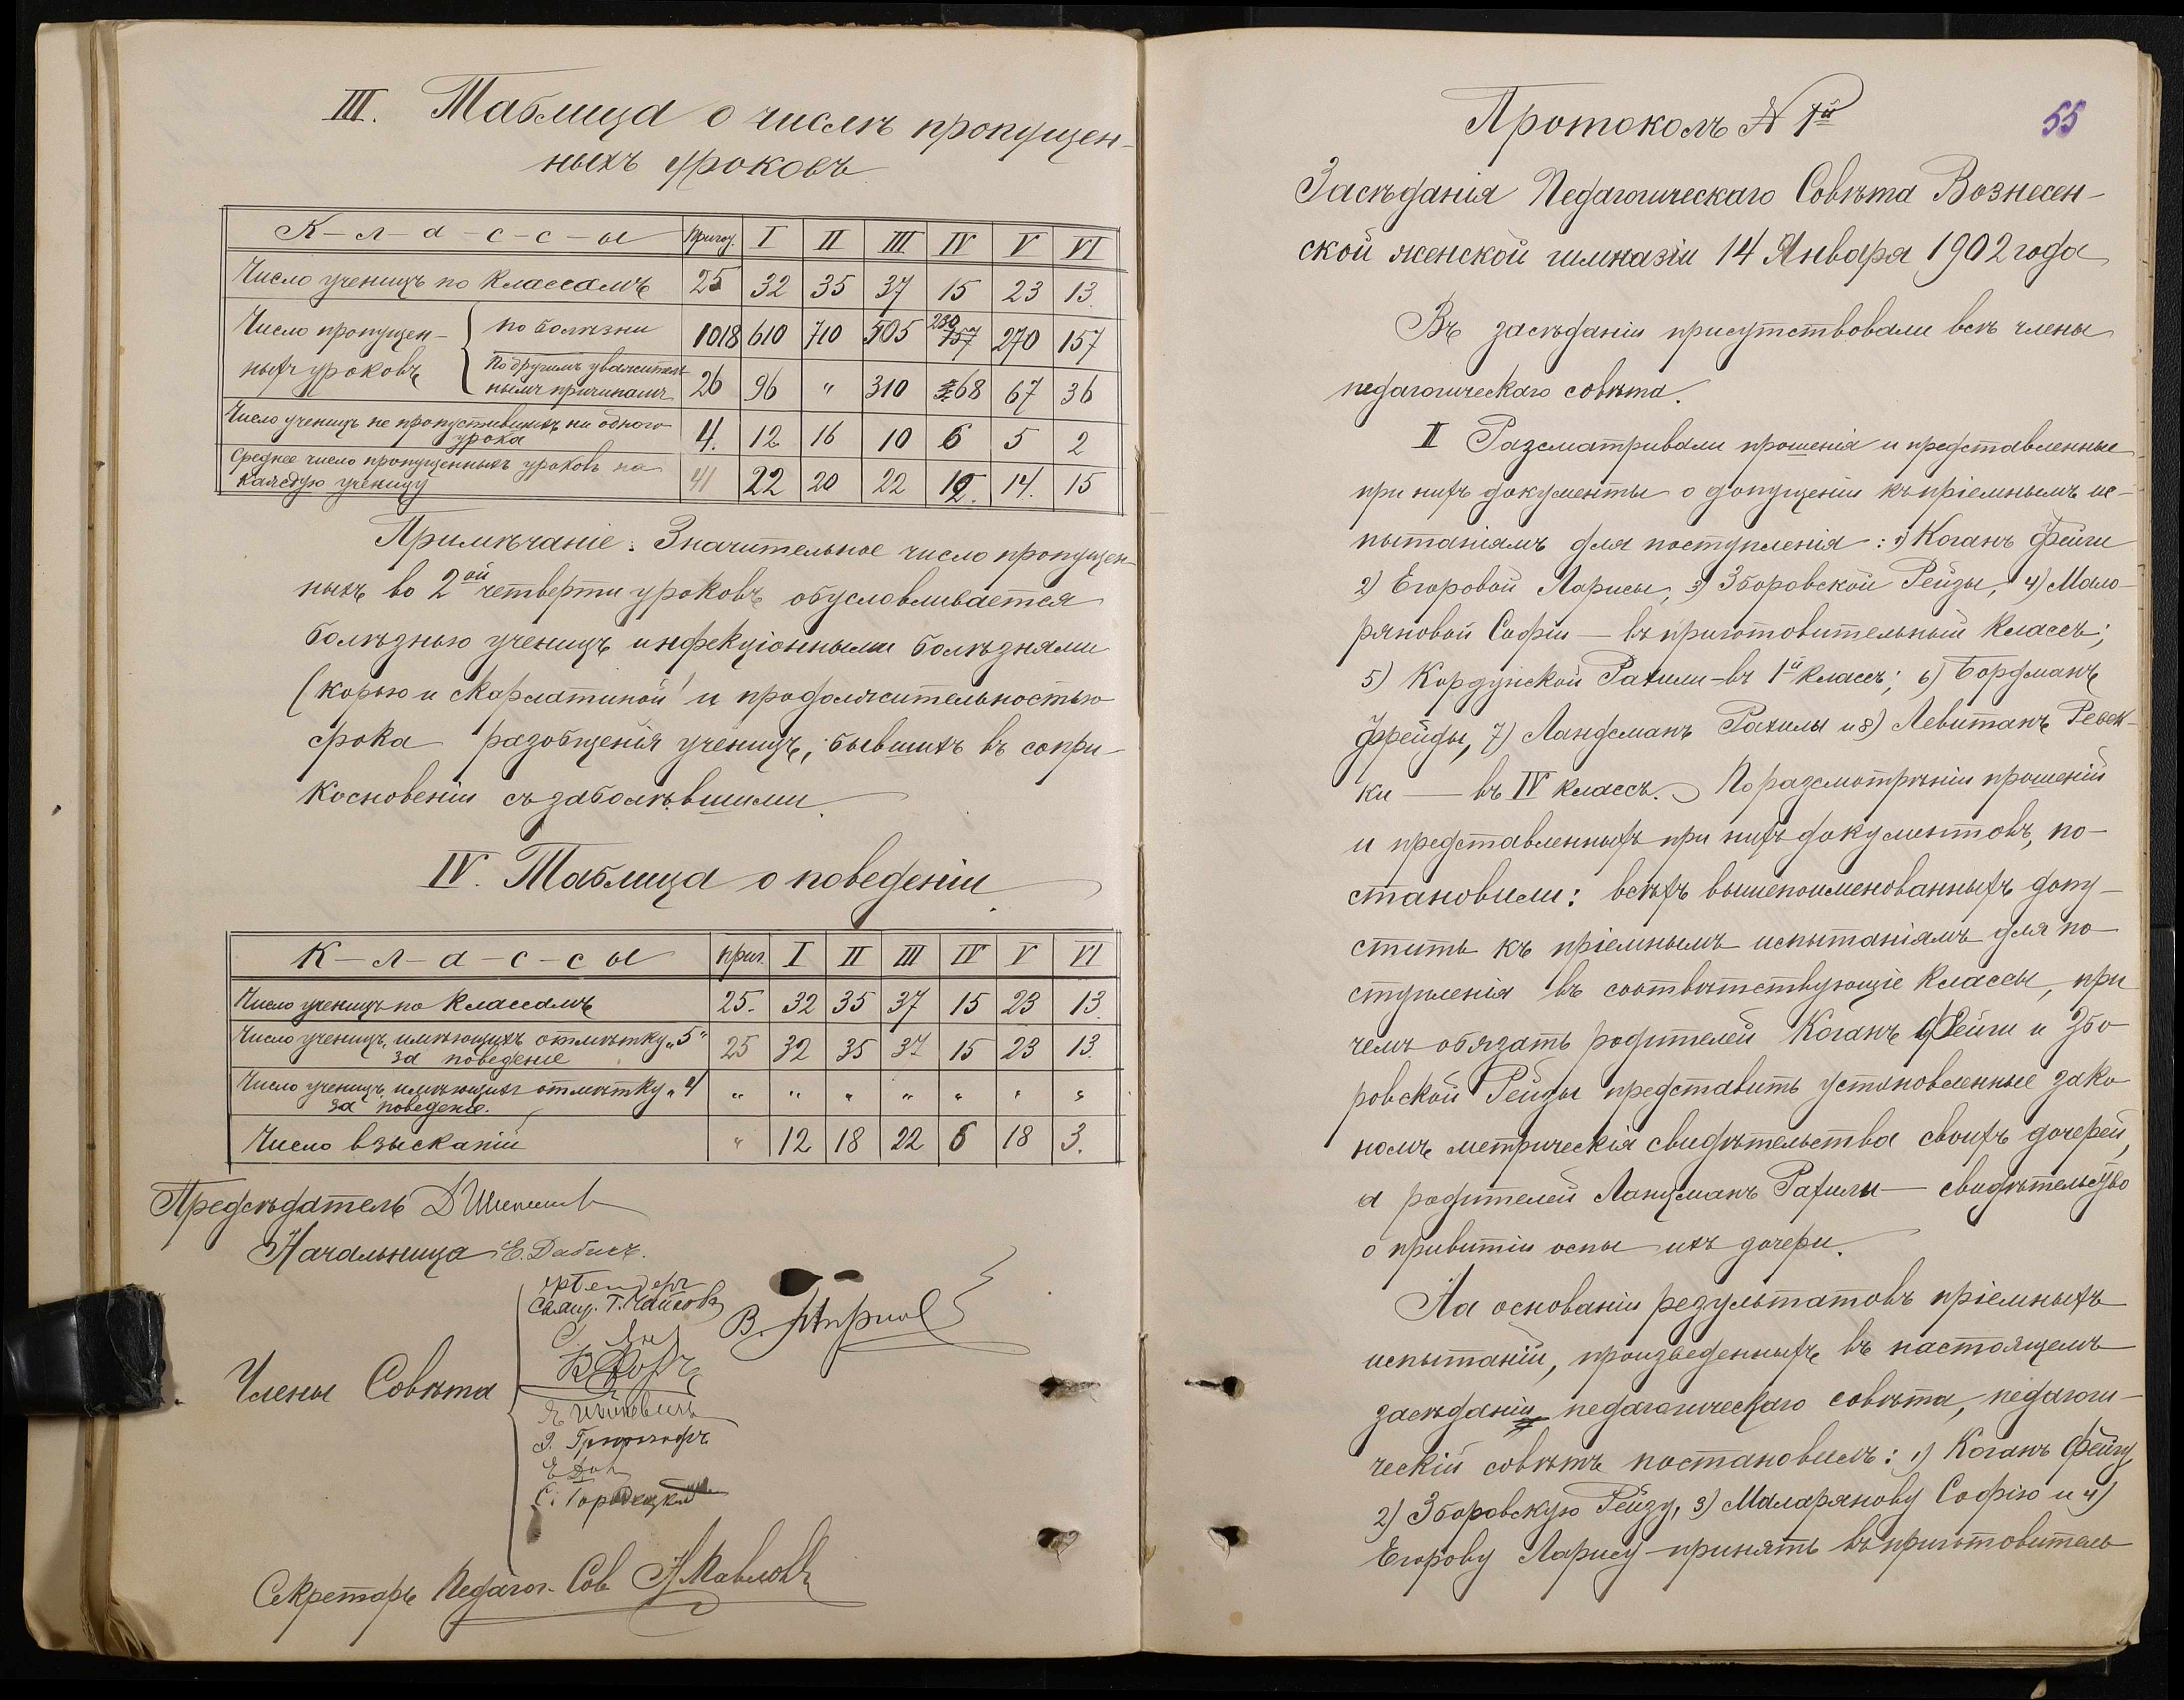 III. Таблица о числѣ пропущен-
ныхъ уроковъ
К-л-а-с-с-ы Пригот. I II III IV V VI
Число ученицъ по классамъ 25 32 35 37 15 23 13.
Число пропущен-
ныхъ уроковъ
по болѣзни 1018 610 710 505 230 157 270 157
По другимъ уважитель
нымъ причинамъ 26 96 " 310 68 67 36
Число ученицъ не пропустившихъ ни одного
урока 4. 12 16 10 6 5 2
Среднее число пропущенныхъ уроковъ на
каждую ученицу 41 22 20 22 12. 14. 15
Примѣчаніе: Значительное число пропущен-
ныхъ во 2ой четверти уроковъ обусловливается
болѣзнью ученицъ инфекціонными болѣзнями
(корью и скарлатиной) и продолжительностью
срока разобщенія ученицъ, бывшихъ въ сопри-
косновеніи съ заболѣвшими.
IV. Таблица о поведеніи
К-л-а-с-с-ы приг. I II III IV V VI
Число ученицъ по классамъ 25. 32 35 37 15 23 13.
Число ученицъ, имѣющихъ отмѣтку "5"
за поведеніе 25 32 35 37 15 23 13.
Число ученицъ, имѣющихъ отмѣтку "4
за поведеніе. " " " " " " "
Число взысканій " 12 18 22 6 18 3.
Предсѣдатель
Начальница Е.
Свящ. Г.
В.
Члены Совѣта
С. Городецкій
Секретарь Педагог. Сов
Протоколъ № 1й
55
Засѣданія Педагогическаго Совѣта Вознесен-
ской женской гимназіи 14 Января 1902 года
Въ засѣданіи присутствовали всѣ члены
педагогическаго совѣта.
II Разсматривали прошенія и представленные
при нихъ документы о допущеніи къ пріемнымъ ис-
пытаніямъ для поступленія: 1) Коганъ Фейги
2) Егоровой Ларисы, 3) Зборовской Рейзы, 4) Мало-
ряновой Софіи — въ приготовительный классъ;
5) Кордунской Рахили - въ 1й классъ; 6) Бордманъ
Фрейды, 7) Ландсманъ Рахилы и 8) Левитанъ Ревек-
ки — въ IV классъ. По разсмотрѣніи прошеній
и представленныхъ при нихъ документовъ, по-
становили: всѣхъ вышепоименованныхъ допу-
стить къ пріемнымъ испытаніямъ для по-
ступленія въ соотвѣтствующіе классы, при
чемъ обязать родителей Коганъ Фейги и Збо-
ровской Рейзы представить установленные зако-
номъ метрическія свидѣтельства своихъ дочерей,
а родителей Ландсманъ Рахилы — свидѣтельство
о привитіи оспы ихъ дочери.
На основаніи результатовъ пріемныхъ
испытаній, произведенныхъ въ настоящемъ
засѣданіи педагогическаго совѣта, педагоги-
ческій совѣтъ постановилъ: 1) Коганъ Фейгу,
2) Зборовскую Рейзу, 3) Маларянову Софію и 4)
Егорову Ларису - принять въ приготовитель